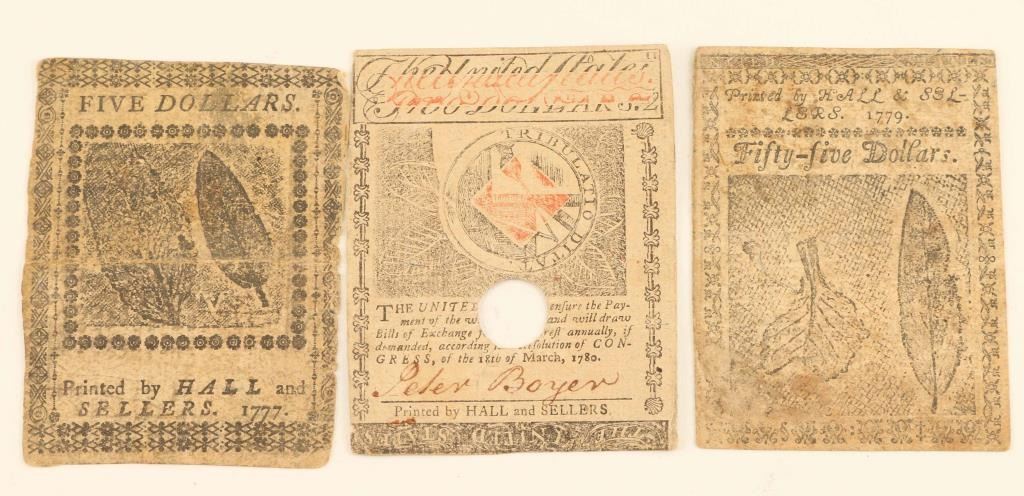 FIVE DOLLARS.
Printed by HALL and
SELLERS. 1777.
The United States
TWO DOLLARS. 2
TRIBULATIO DITAT
THE UNITED ensure the Pay-
ment of the w and will draw
Bills of Exchange f rest annually, if
demanded, according Resolution of CON-
GRESS, of the 18th of March, 1780.
Peter Boyer
Printed by HALL and SELLERS.
THE UNITED STATES
Printed by HALL & SEL-
LERS. 1779.
Fifty-five Dollars.